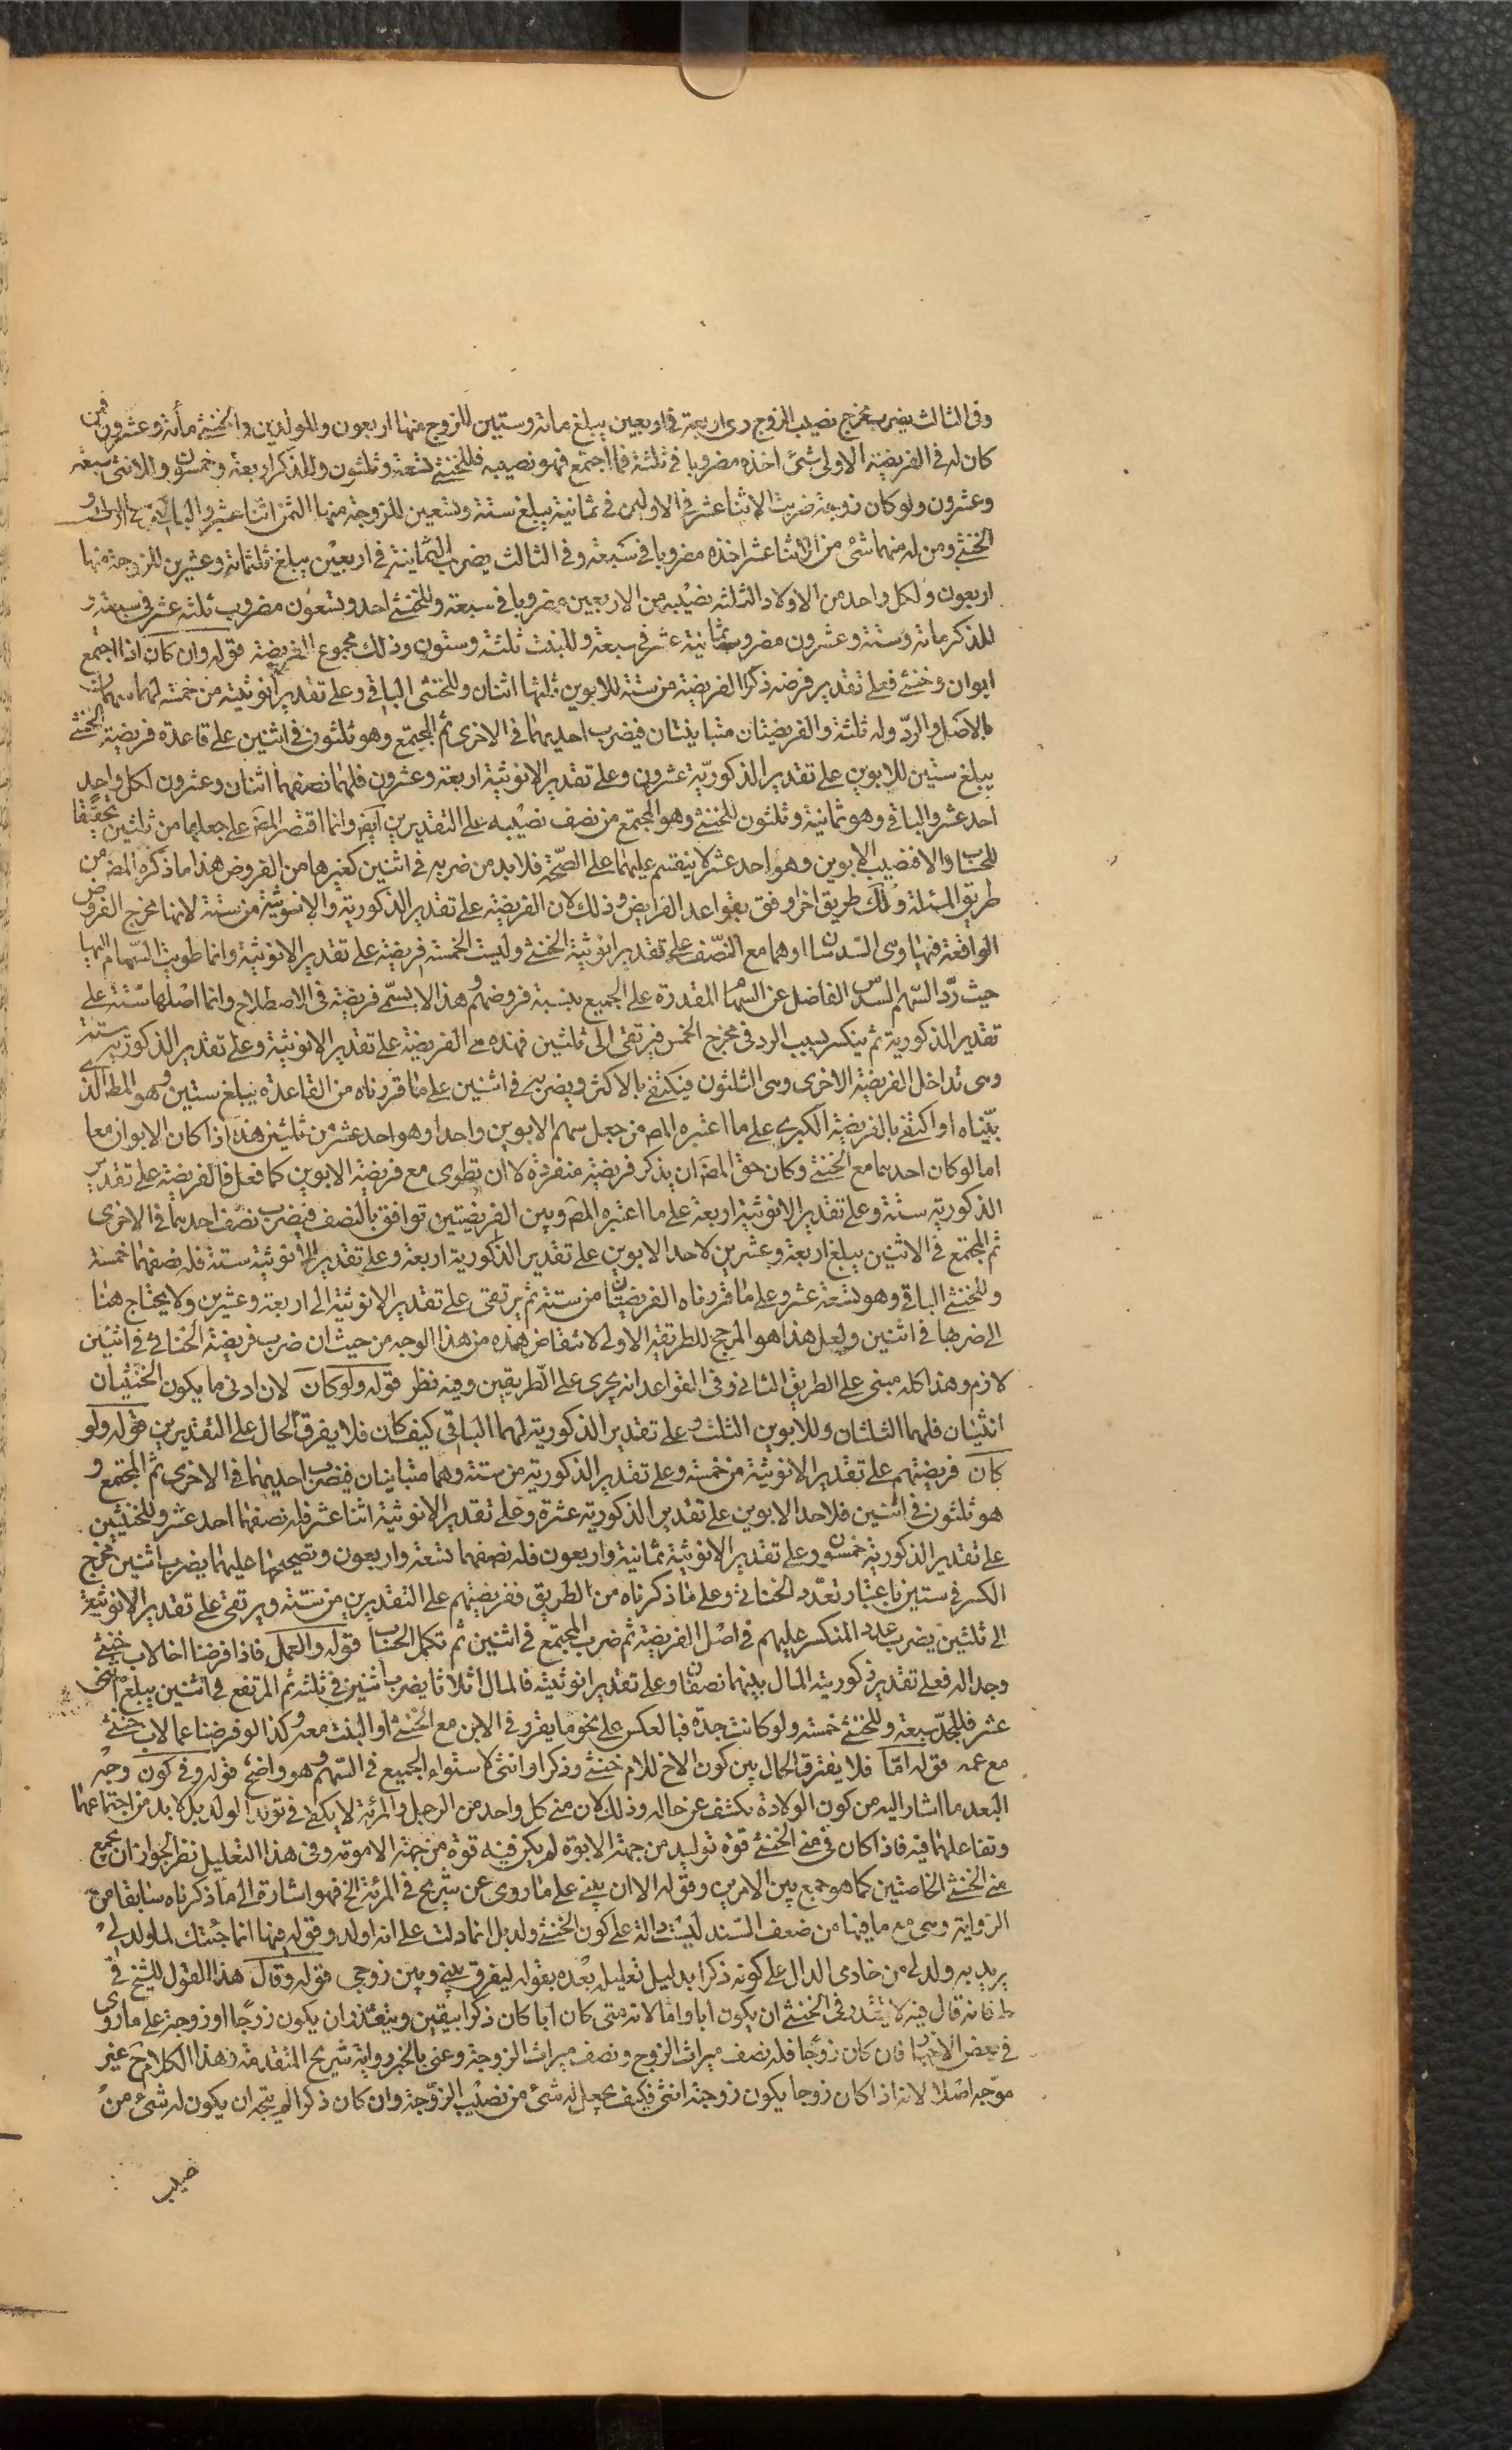 وفى الثالث يضرب مخرج نصيب الزوج وهى اربعة فى اربعين يبلغ مائة وستين للزوج منها اربعون وللولدين والخنثى مائة وعشرون فمن
كان له فى الفريضة الاولى شئ اخذه مضروبا فى ثلثة فما اجتمع فهو نصيبه فللخنثى تسعة وثلثون وللذكر اربعة وخمسون وللانثى سبعة
وعشرون ولو كان زوجة ضربت الاثنا عشر فى الاولين فى ثمانية يبلغ ستة وتسعين للزوجة منها الثمن اثنا عشر والباقى
الخنثى ومن له منهما شئ من الاثنا عشر اخذه مضروبا فى سبعة وفى الثالث يضرب الثمانية فى اربعين يبلغ ثلثمائة وعشرين للزوجة منها
اربعون ولكل واحد من الاولاد الثلثة نصيبه من الاربعين مضروبا فى سبعة وللخنثى احد وتسعون مضروب ثلثة عشر فى سبعة و
للذكر مائة وستة وعشرون مضروب ثمانية عشر فى سبعة وللبنت ثلثة وستون وذلك مجموع الفريضة قوله وان كان اذا اجتمع
ابوان وخنثى فعلى تقدير فرضه ذكرا الفريضة من ستة للابوين ثلثها اثنان وللخنثى الباقى وعلى تقدير انوثيته من خمسة لهما سهمان
بالاصل والرد وله ثلثة والفريضتان متباينتان فيضرب احديهما فى الاخرى ثم المجتمع وهو ثلثون فى اثنين على قاعدة فريضة الخنثى
يبلغ ستين للابوين على تقدير الذكورية عشرون وعلى تقدير الانوثية اربعة وعشرون فلهما نصفهما اثنان وعشرون لكل واحد
احد عشر والباقى وهو ثمانية وثلثون للخنثى وهو المجتمع من نصف نصيبه على التقديرين ايض وانما اقتصر المص على جعلهما من ثلثين تحقيقا
للحساب والا فنصيب الابوين وهو احد عشر لا ينقسم عليهما على الصحة فلا بد من ضربه فى اثنين كغيرها من الفروض هذا ما ذكره المص من
طريق المسئلة ولك طريق اخر اوفق بقواعد الفرايض وذلك لان الفريضة على تقدير الذكورية والانوثية من ستة لانها مخرج الفروض
الواقعة فيها وهى السدسان او هما مع النصف على تقدير انوثية الخنثى وليست الخمسة فريضة على تقدير الانوثية وانما طويت السهام اليها
حيث رد السهم السدس الفاضل عن السهام المقدرة على الجميع بنسبة فروضهم وهذا لا يسمى فريضة فى الاصطلاح وانما اصلها ستة على
تقدير الذكورية ثم ينكسر بسبب الرد فى مخرج الخمس فيرتقى الى ثلثين فهذه هى الفريضة على تقدير الانوثية وعلى تقدير الذكورية ستة
وهى تداخل الفريضة الاخرى وهى الثلثون فيكتفى بالاكثر ويضربه فى اثنين على ما قررناه من القاعدة يبلغ ستين وهو المط الذى
بيناه او اكتفى بالفريضة الكبرى على ما اعتبره المص من جعل سهم الابوين واحدا وهو احد عشر من ثلثين هذا اذا كان الابوان معا
اما لو كان احدهما مع الخنثى وكان حق المص ان يذكر فريضة منفردة لا ان تطوى مع فريضة الابوين كما فعل فالفريضة على تقدير
الذكورية ستة وعلى تقدير الانوثية اربعة على ما اعتبره المص وبين الفريضتين توافق بالنصف فيضرب نصف احديهما فى الاخرى
ثم المجتمع فى الاثنين يبلغ اربعة وعشرين لاحد الابوين على تقدير الذكورية اربعة وعلى تقدير الانوثية ستة فله نصفهما خمسة
وللخنثى الباقى وهو تسعة عشر وعلى ما قررناه الفريضتان من ستة ثم يرتقى على تقدير الانوثية الى اربعة وعشرين ولا يحتاج هنا
الى ضربها فى اثنين ولعل هذا هو المرجح للطريقة الاولى لانتقاض هذه من هذا الوجه من حيث ان ضرب فريضة الخناثى فى اثنين
لازم وهذا كله مبنى على الطريق الثانى وفى القواعد انه يجرى على الطريقين وفيه نظر قوله ولو كان لان ادنى ما يكون الخنثيان
انثيان فلهما الثلثان وللابوين الثلث وعلى تقدير الذكورية لهما الباقى كيف كان فلا يفرق الحال على التقديرين قوله ولو
كان فريضتهم على تقدير الانوثية من خمسة وعلى تقدير الذكورية من ستة وهما متباينان فيضرب احديهما فى الاخرى ثم المجتمع و
هو ثلثون فى اثنين فلاحد الابوين على تقدير الذكورية عشرة وعلى تقدير الانوثية اثنا عشر فله نصفهما احد عشر وللخنثيين
على تقدير الذكورية خمسون وعلى تقدير الانوثية ثمانية واربعون فله نصفهما تسعة واربعون وتصحيحها عليهما يضرب اثنين مخرج
الكسر فى ستين باعتبار تعدد الخناثى وعلى ما ذكرناه من الطريق ففريضتهم على التقديرين من ستة ويرتقى على تقدير الانوثية
الى ثلثين يضرب عدد المنكسر عليهم فى اصل الفريضة ثم ضرب المجتمع فى اثنين ثم تكمل الحساب قوله والعمل فاذا فرضنا اخا لاب خنثى
وجدا له فعلى تقدير ذكوريته المال بينهما نصفان وعلى تقدير انوثيته فالمال اثلاثا يضرب اثنين فى ثلثة ثم المرتفع فى اثنين يبلغ اثنى
عشر فللجد سبعة وللخنثى خمسة ولو كانت جدة فبالعكس على نحو ما يقرر فى الابن مع الخنثى او البنت معه وكذا لو فرضنا عما لاب خنثى
مع عمه قوله اما فلا يفترق الحال بين كون الاخ للام خنثى وذكرا وانثى لاستواء الجميع فى السهم وهو واضح قوله وفى كون وجه
البعد ما اشار اليه من كون الولادة يكشف عن حاله وذلك لان منى كل واحد من الرجل والمرئة لا يكفى فى توليد الولد بل لا بد من اجتماعهما
وتفاعلهما فيه فاذا كان فى منى الخنثى قوة توليد من جهة الابوة لم يكن فيه قوة من جهة الامومة وفى هذا التعليل نظر لجواز ان يجمع
منى الخنثى الخاصتين كما هو جمع بين الامرين وقوله الا ان يبنى على ما روى عن شريح فى المرئة الخ فهو اشارة الى ما ذكرناه سابقا من
الرواية وهى مع ما فيها من ضعف السند ليست دالة على كون الخنثى ولد بل انما دلت على انه اولد وقوله فيها انما جئتك لما ولد لى
يريد به ولد لى من خادمى الدال على كونه ذكرا بدليل تعليله بعده بقوله ليفرق بينى وبين زوجى قوله وقال هذا القول للشيخ فى
ط فانه قال فيه لا يتقدر فى الخنثى ان يكون ابا واما لانه متى كان ابا كان ذكرا بيقين ويتعذر ان يكون زوجا او زوجة على ما روى
فى بعض الاخبار فان كان زوجا فله نصف ميراث الزوج ونصف ميراث الزوجة وعنى بالخبر رواية شريح المتقدمة وهذا الكلام غير
موجه اصلا لانه اذا كان زوجا يكون زوجته انثى فكيف يجعل له شئ من نصيب الزوجة وان كان ذكرا لم يتجه ان يكون له شئ من